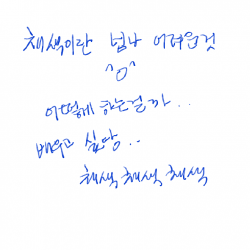 채색이란 넘나 어려운것
^o^
어떻게 하는걸까..
배우고 싶당..
채색채색채색